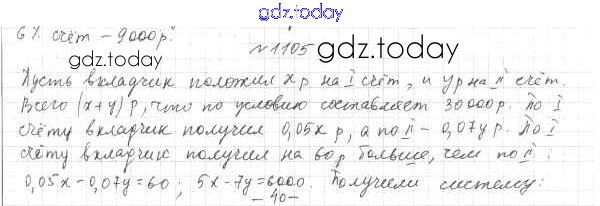 gdz.today
6% счёт – 9000р."
№1105 gdz.today
Пусть вкладчик положил x р на I счёт, и y р на II счёт.
Всего (x+y) р, что по условию составляет 30000р. По I
счёту вкладчик получил 0,05x р, а по II – 0,07y р. По I
счёту вкладчик получил на 60 р больше, чем по II:
0,05x-0,07y=60; 5x-7y=6000. Получили систему:
– 40 –
gdz.today